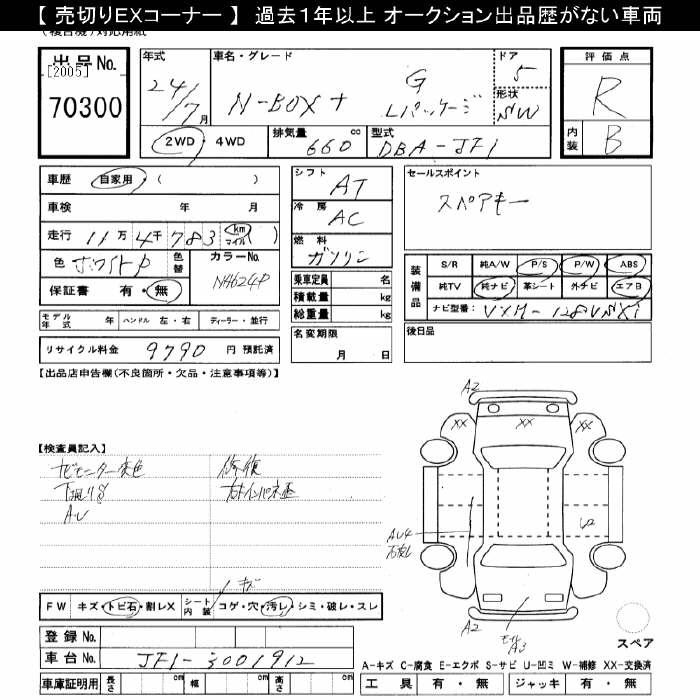 【 売切りEXコーナー 】 過去1年以上 オークション出品歴がない車両
出品No.
[2005]
70300
年式
24/7月
車名・グレード
N-BOX+ G Lパッケージ
ドア
5
形状
SW
評価点
R
内装
B
2WD・4WD
排気量 660 cc
型式 DBA-JF1
車歴 自家用・( )
車検 年 月
走行 11万4千783 km マイル ( )
色 ホワイトP
色替
カラーNo. NH624P
保証書 有・無
シフト AT
冷房 AC
燃料 ガソリン
乗車定員 名
積載量 kg
総重量 kg
セールスポイント
スペアキー
装備品
S/R 純A/W P/S P/W ABS
純TV 純ナビ 革シート 外ナビ エアB
ナビ型番: VXM-128VSXi
モデル年式 年 ハンドル 左・右 ディーラー・並行
名変期限 月 日
後日品
リサイクル料金 9790 円 預託済
【出品店申告欄(不良箇所・欠品・注意事項等)】
【検査員記入】
ナビモニター変色 修復
下廻りS
AU
A2
XX XX XX
AU4
A2
A3
キズ
FW キズ・トビ石・割レX シート内装 コゲ・穴・汚レ・シミ・破レ・スレ
登録No.
車台No. JF1-3001912
スペア
A-キズ C-腐食 E-エクボ S-サビ U-凹ミ W-補修 XX-交換済
車庫証明用 長さ cm 幅 cm 高さ cm
工具 有・無 ジャッキ 有・無